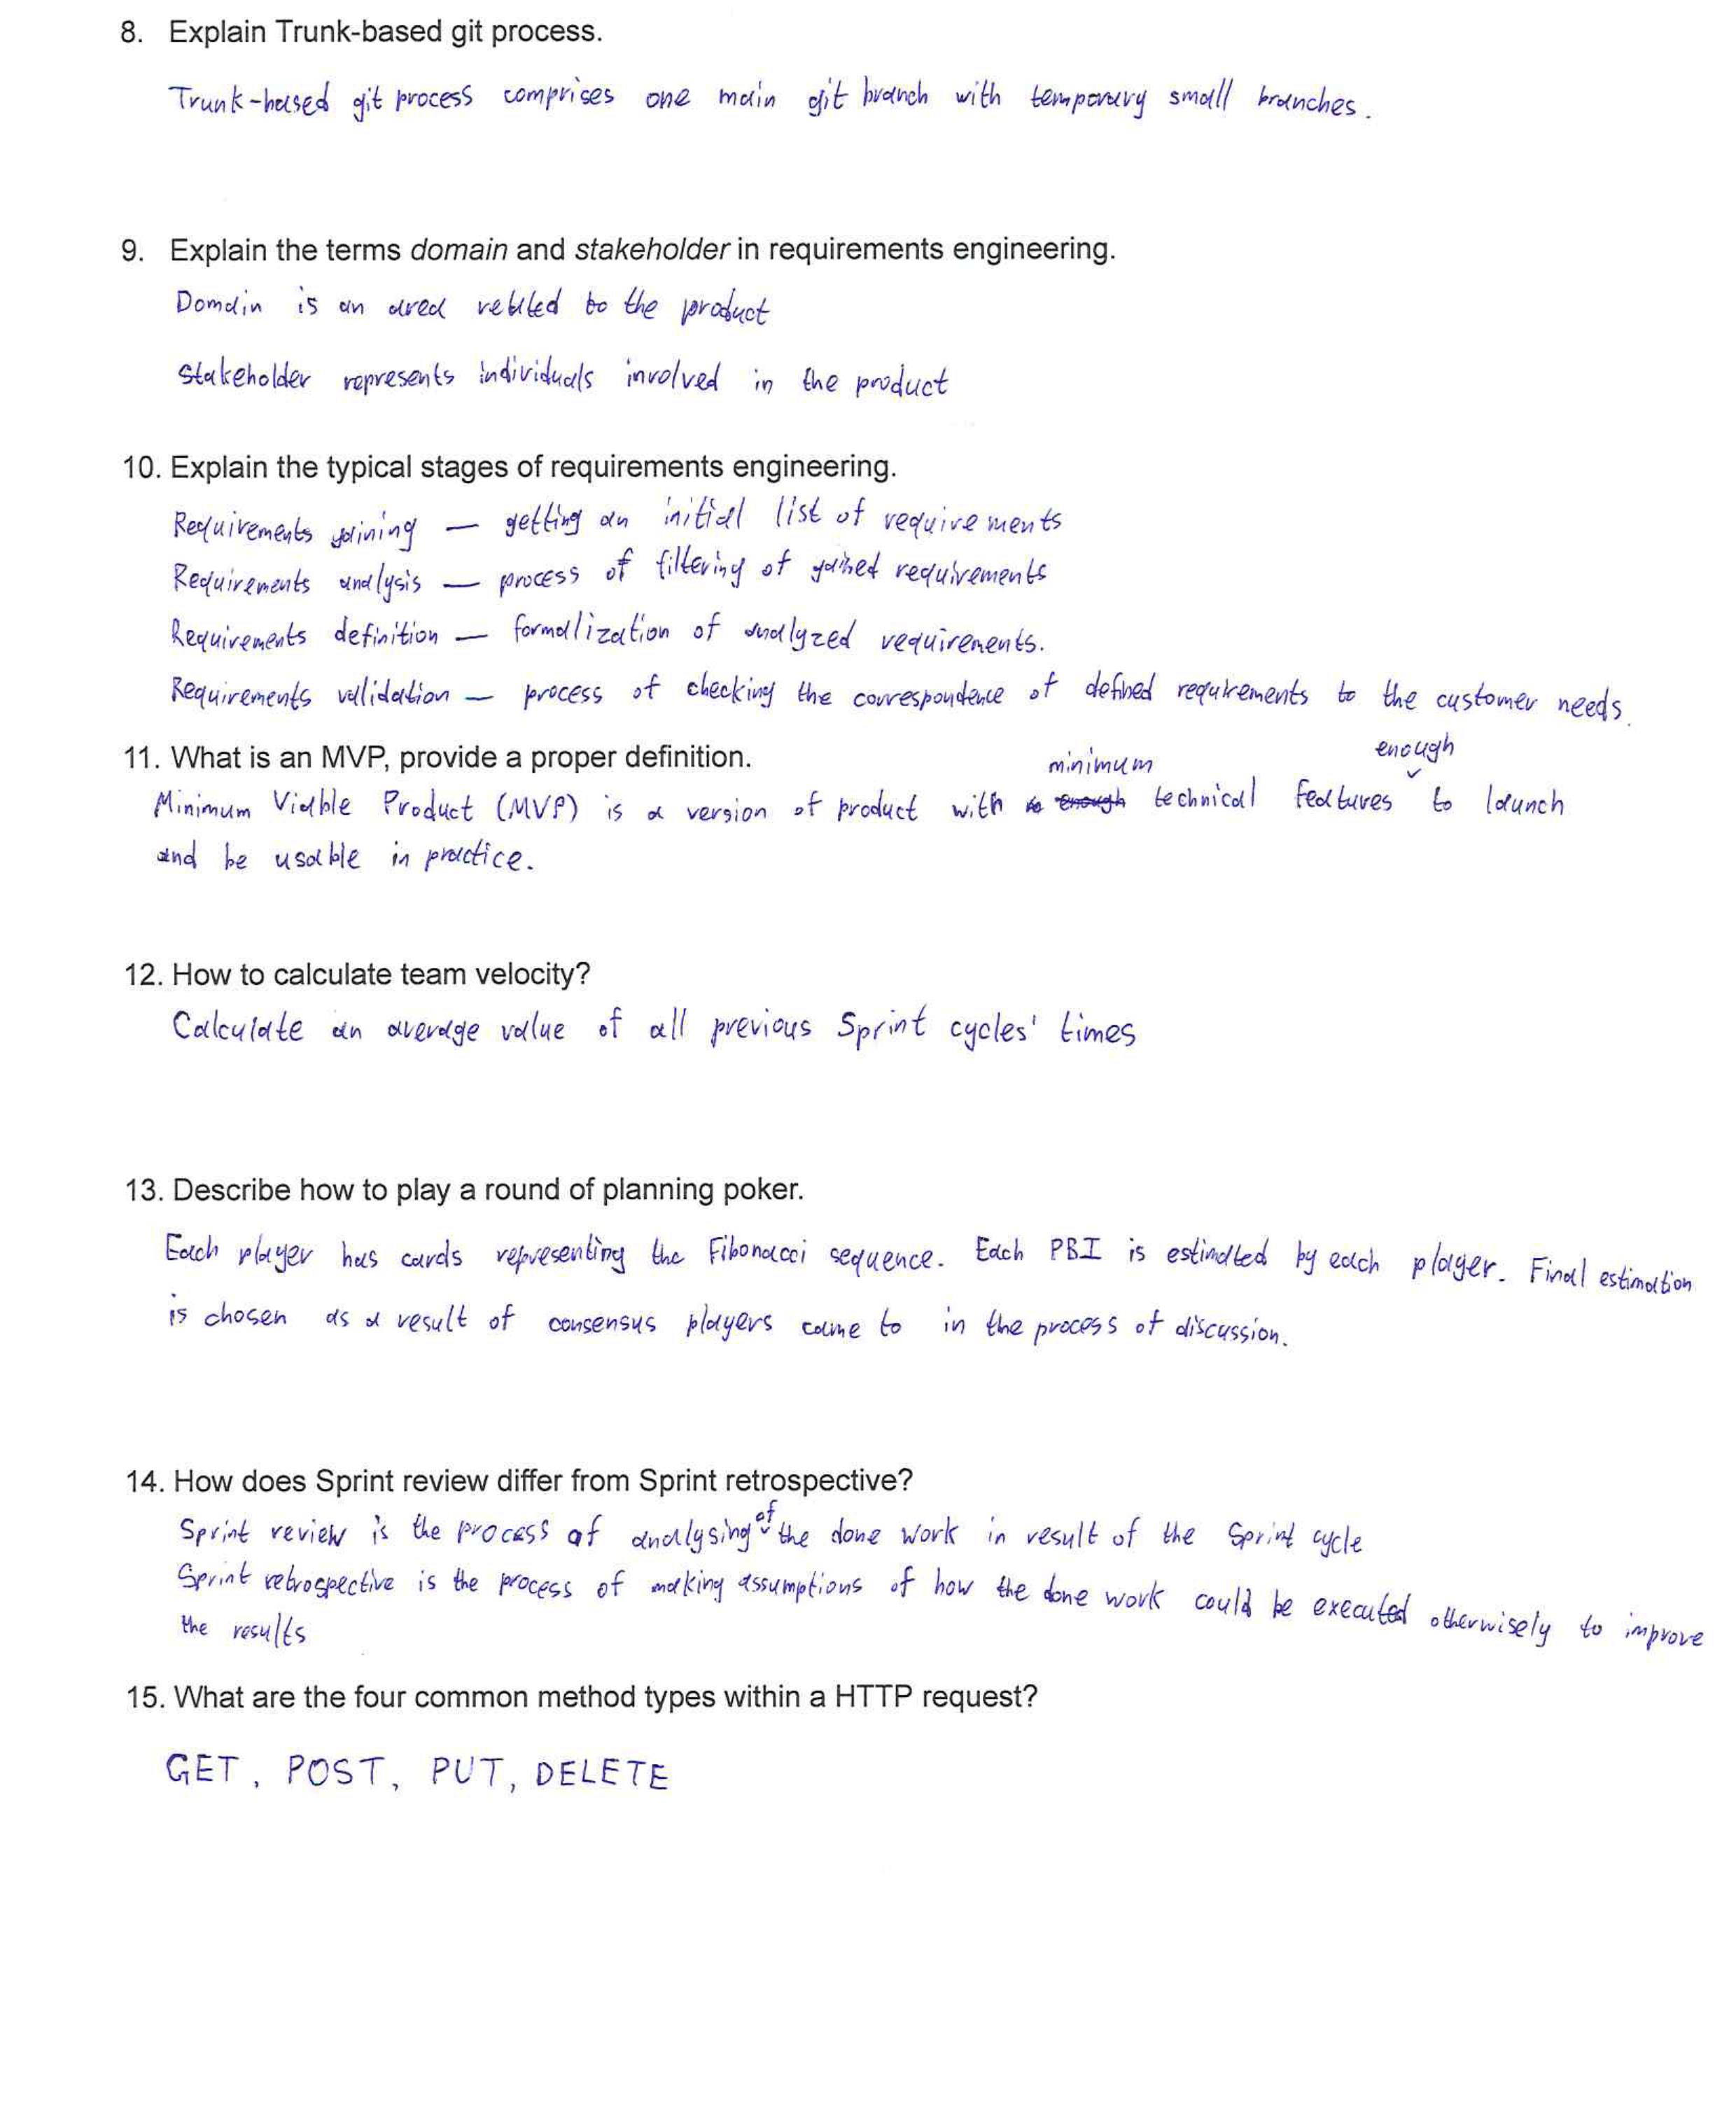 8. Explain Trunk-based git process.
Trunk-based git process comprises one main git branch with temporary small branches.
9. Explain the terms domain and stakeholder in requirements engineering.
Domain is an area related to the product
Stakeholder represents individuals involved in the product
10. Explain the typical stages of requirements engineering.
Requirements gaining — getting an initial list of requirements
Requirements analysis — process of filtering of gained requirements
Requirements definition — formalization of analyzed requirements.
Requirements validation — process of checking the correspondence of defined requirements to the customer needs.
11. What is an MVP, provide a proper definition.
minimum enough
Minimum Viable Product (MVP) is a version of product with enough technical features to launch
and be usable in practice.
12. How to calculate team velocity?
Calculate an average value of all previous Sprint cycles' times
13. Describe how to play a round of planning poker.
Each player has cards representing the Fibonacci sequence. Each PBI is estimated by each player. Final estimation
is chosen as a result of consensus players came to in the process of discussion.
14. How does Sprint review differ from Sprint retrospective?
of
Sprint review is the process of analysing the done work in result of the Sprint cycle
Sprint retrospective is the process of making assumptions of how the done work could be executed otherwisely to improve
the results
15. What are the four common method types within a HTTP request?
GET, POST, PUT, DELETE